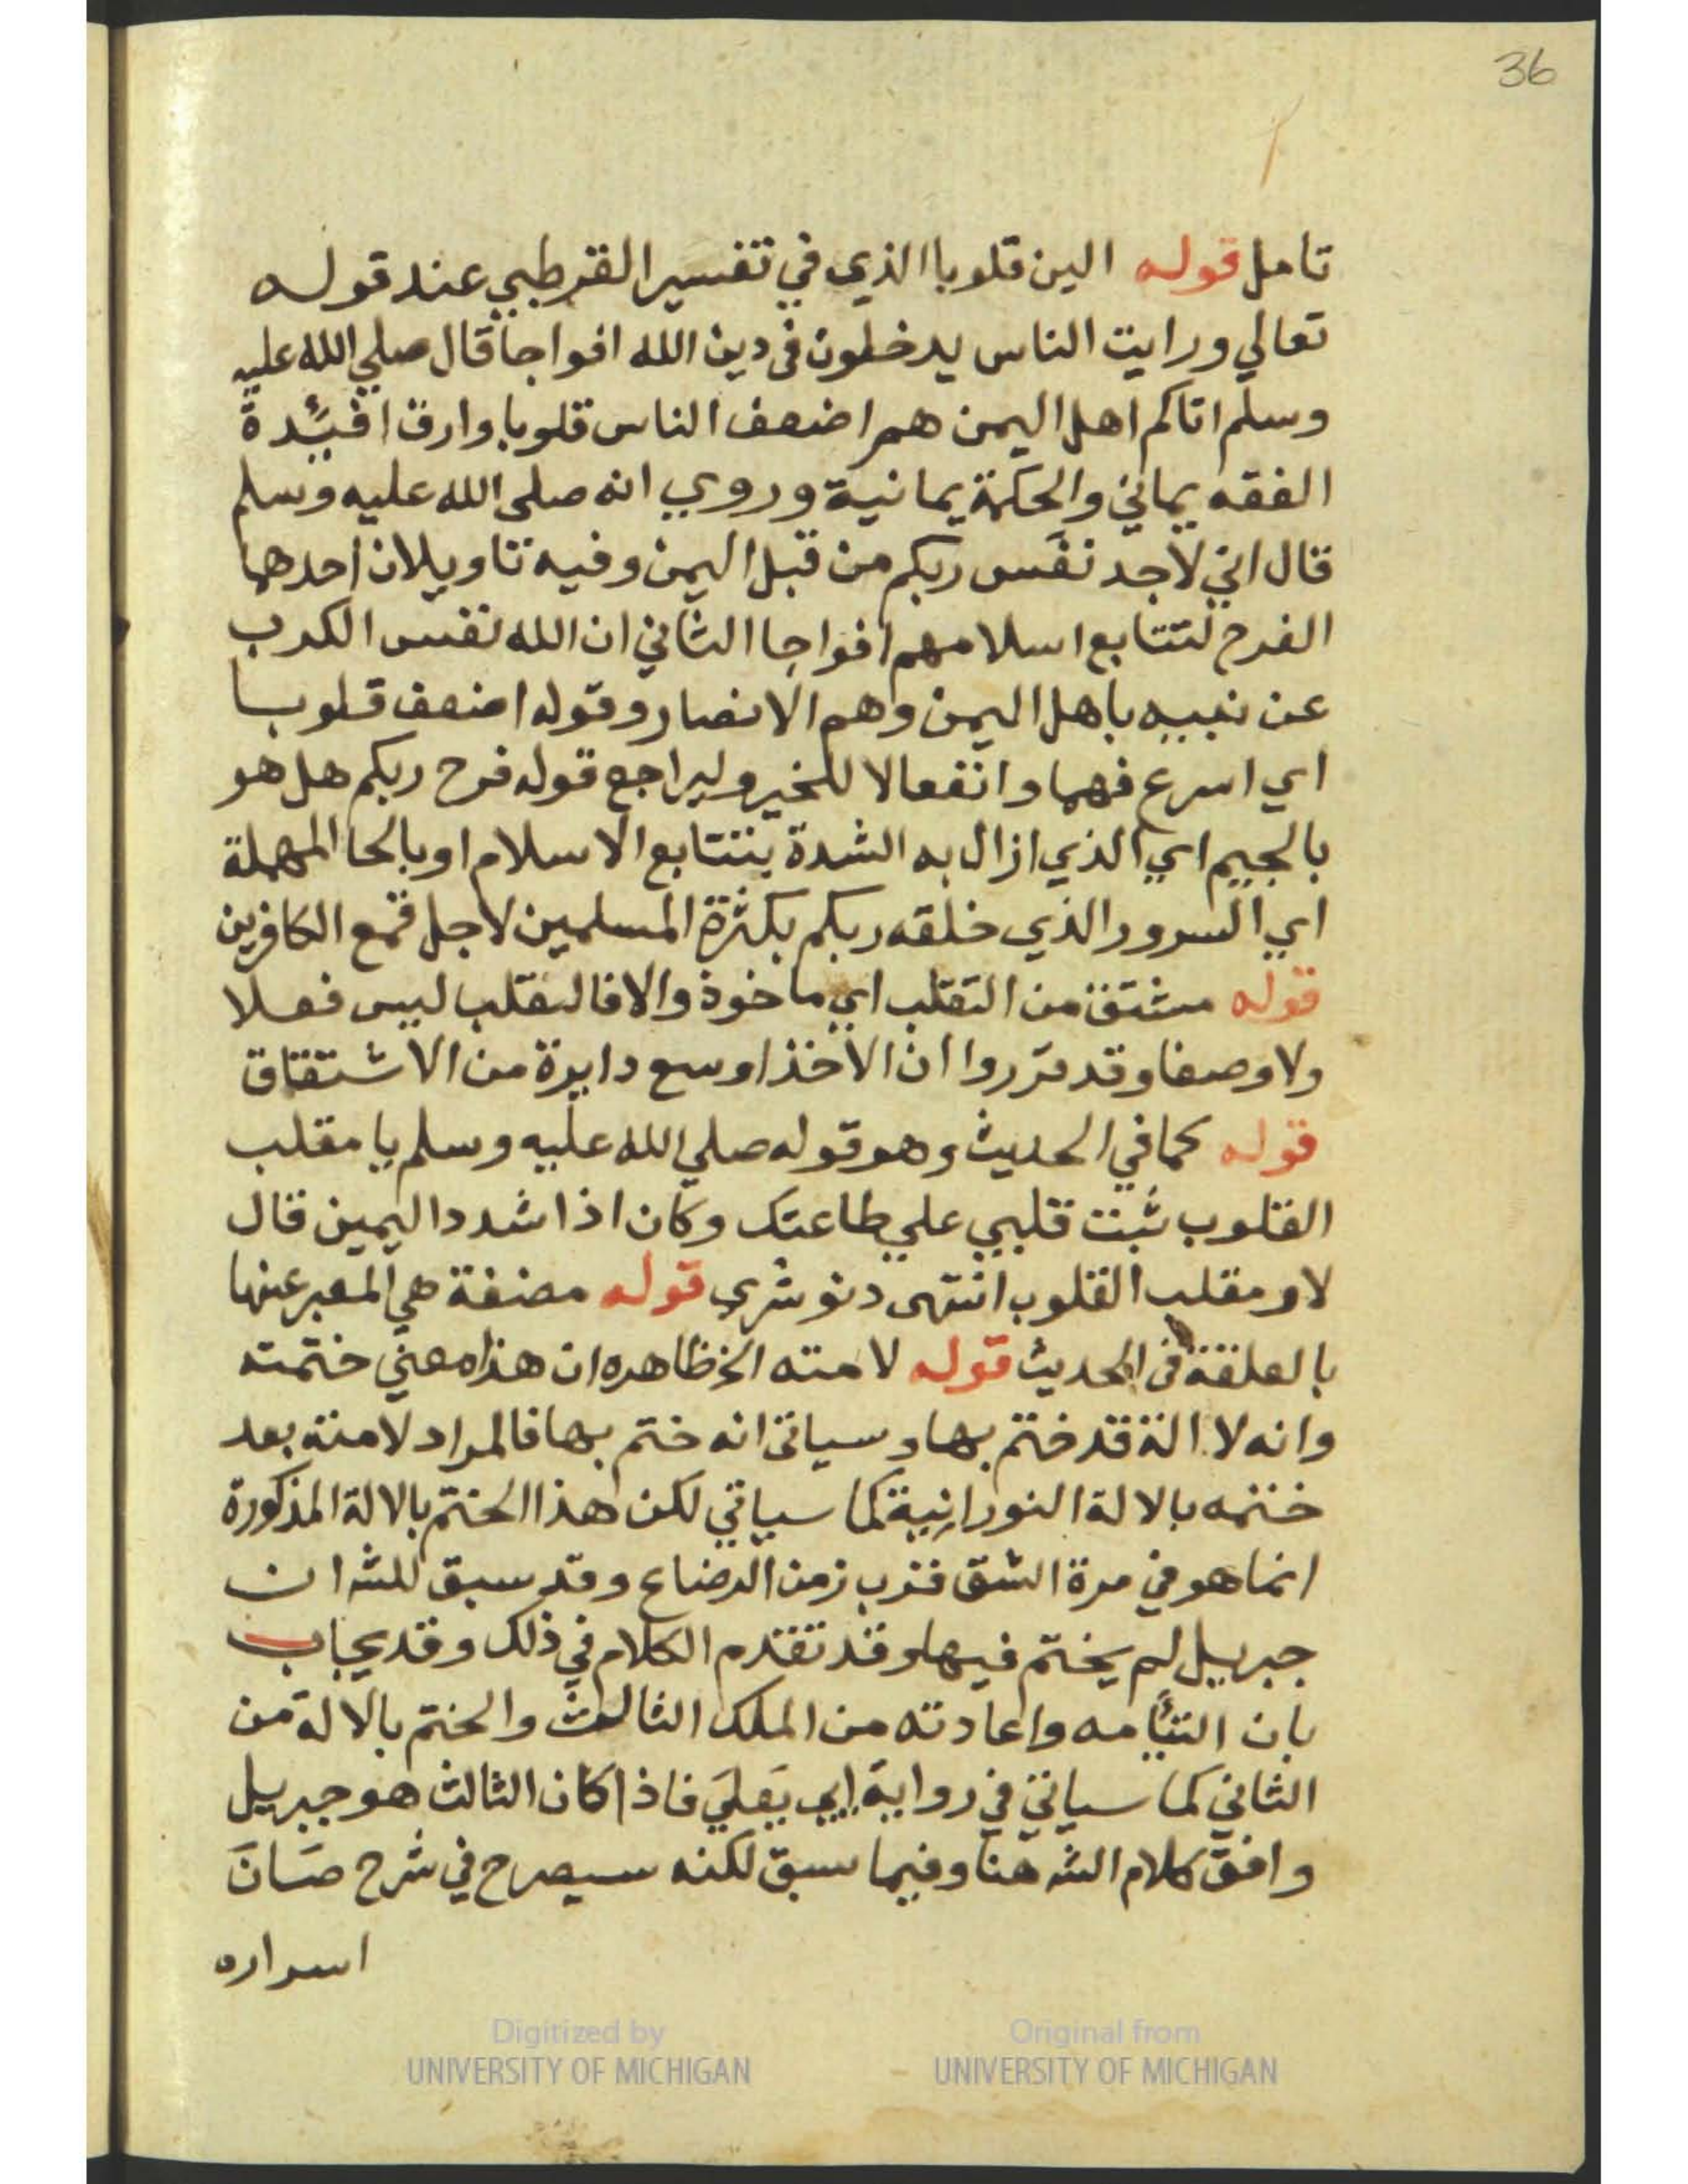 36
تامل قوله الين قلوبا الذي في تفسير القرطبي عند قوله
تعالي ورايت الناس يدخلون في دين الله افواجا قال صلي الله عليه
وسلم اتاكم اهل اليمن هم اضعف الناس قلوبا وارق افئدة
الفقه يماني والحكمة يمانية وروي انه صلى الله عليه وسلم
قال اني لاجد نفَس ربكم من قبل اليمن وفيه تاويلان احدهما
الفرج لتتابع اسلامهم افواجا الثاني ان الله نفس الكرب
عن نبيه باهل اليمن وهم الانصار وقوله اضعف قلوبا
اي اسرع فهما وانفعالا للخير وليراجع قوله فرح ربكم هل هو
بالجيم اي الذي ازال به الشدة بتتابع الاسلام او بالحا المهملة
اي السرور الذي خلقه ربكم بكثرة المسلمين لاجل قمع الكافرين
قوله مشتق من التقلب اي ماخوذ والا فالتقلب ليس فعلا
ولا وصفا وقد قرروا ان الاخذ اوسع دايرة من الاشتقاق
قوله كما في الحديث وهو قوله صلي الله عليه وسلم يا مقلب
القلوب ثبت قلبي علي طاعتك وكان اذا شدد اليمين قال
لا ومقلب القلوب انتهى دنوشري قوله مضغة هي المعبر عنها
بالعلقة في الحديث قوله لامته الخ ظاهره ان هذا معني ختمته
وانه لا الة قد ختم بها وسياتي انه ختم بها فالمراد لامته بعد
ختمه بالالة النورانية كما سياتي لكن هذا الختم بالالة المذكورة
انما هو في مرة الشق قرب زمن الرضاع وقد سبق للشه ان
جبريل لم يختم فيها وقد تقدم الكلام في ذلك وقد يجاب
بان التئامه واعادته من الملك الثالث والختم بالالة من
الثاني كما سياتي في رواية ابي يَعليَ فاذا كان الثالث هو جبريل
وافق كلام الشه هنا وفيما سبق لكنه سيصرح في شرح صَانَ
اسراره
Digitized by
UNIVERSITY OF MICHIGAN
Original from
UNIVERSITY OF MICHIGAN